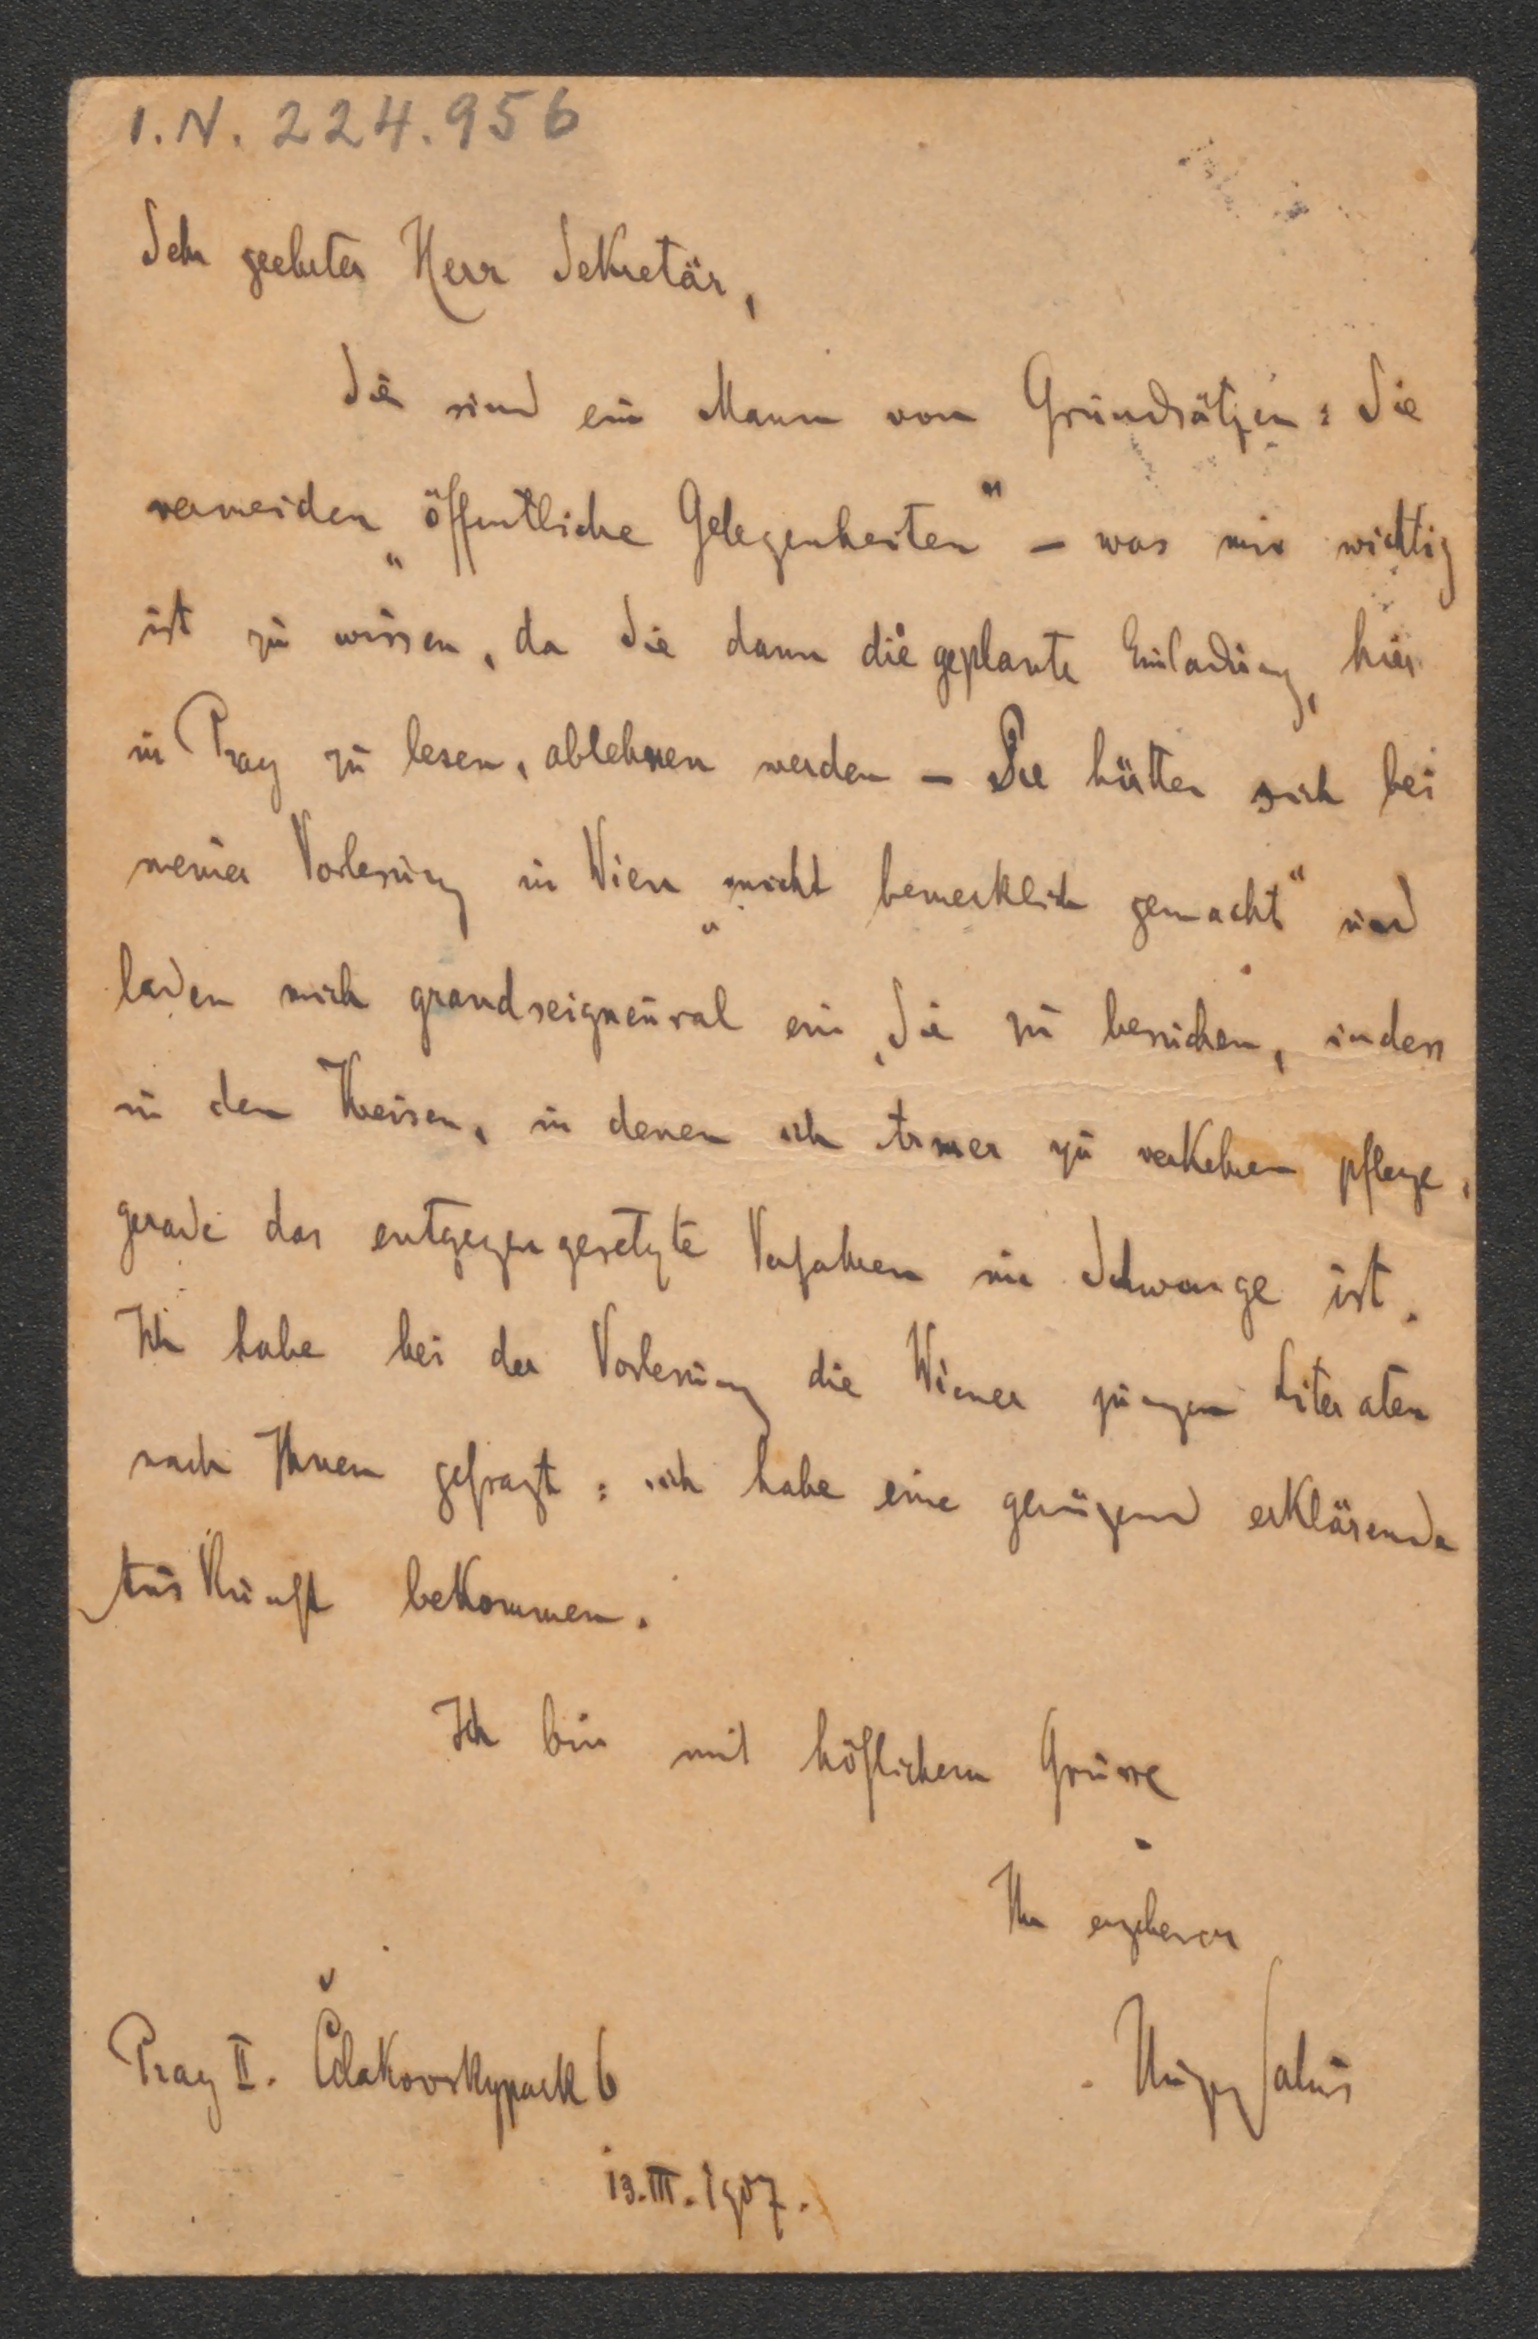 I.N. 224.956
Sehr geehrter Herr Sekretär,
Sie sind ein Mann von Grundsätzen: Sie
vermeiden „öffentliche Gelegenheiten" – was mir wichtig
ist zu wissen, da Sie dann die geplante Einladung, hier
in Prag zu lesen, ablehnen werden – Sie hätten sich bei
meiner Vorlesung in Wien „nicht bemerklich gemacht" und
laden mich grandseigneural ein, Sie zu besuchen, indess
in den Kreisen, in denen ich immer zu verkehren pflege,
gerade das entgegengesetzte Verfahren im Schwange ist.
Ich habe bei der Vorlesung die Wiener jungen Literaten
nach Ihnen gefragt: ich habe eine genügend erklärende
Auskunft bekommen.
Ich bin mit höflichem Grusse
Ihr ergebener
Prag II. Čelakovskypark 6
Hugo Salus
13.III.1907.